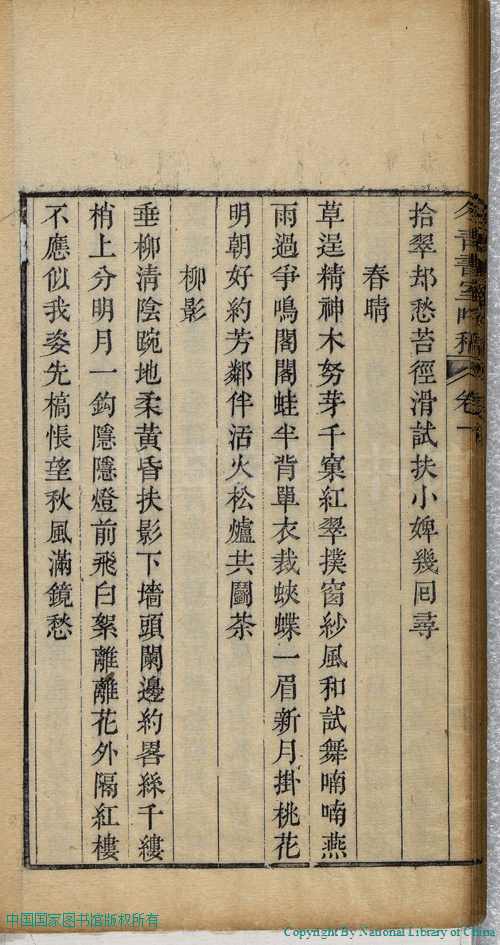 冬青書室吟稿 卷一
拾翠却愁苔徑滑試扶小婢幾囘尋
春晴
草逞精神木努芽千窠紅翠撲窗紗風和試舞喃喃燕
雨過爭鳴閣閣蛙半背單衣裁蛺蝶一眉新月掛桃花
明朝好約芳鄰伴活火松爐共鬭茶
柳影
垂柳清陰踠地柔黃昏扶影下墻頭闌邊約畧絲千縷
梢上分明月一鈎隱隱燈前飛白絮離離花外隔紅樓
不應似我姿先槁悵望秋風滿鏡愁
中国国家图书馆版权所有
Copyright By National Library of China